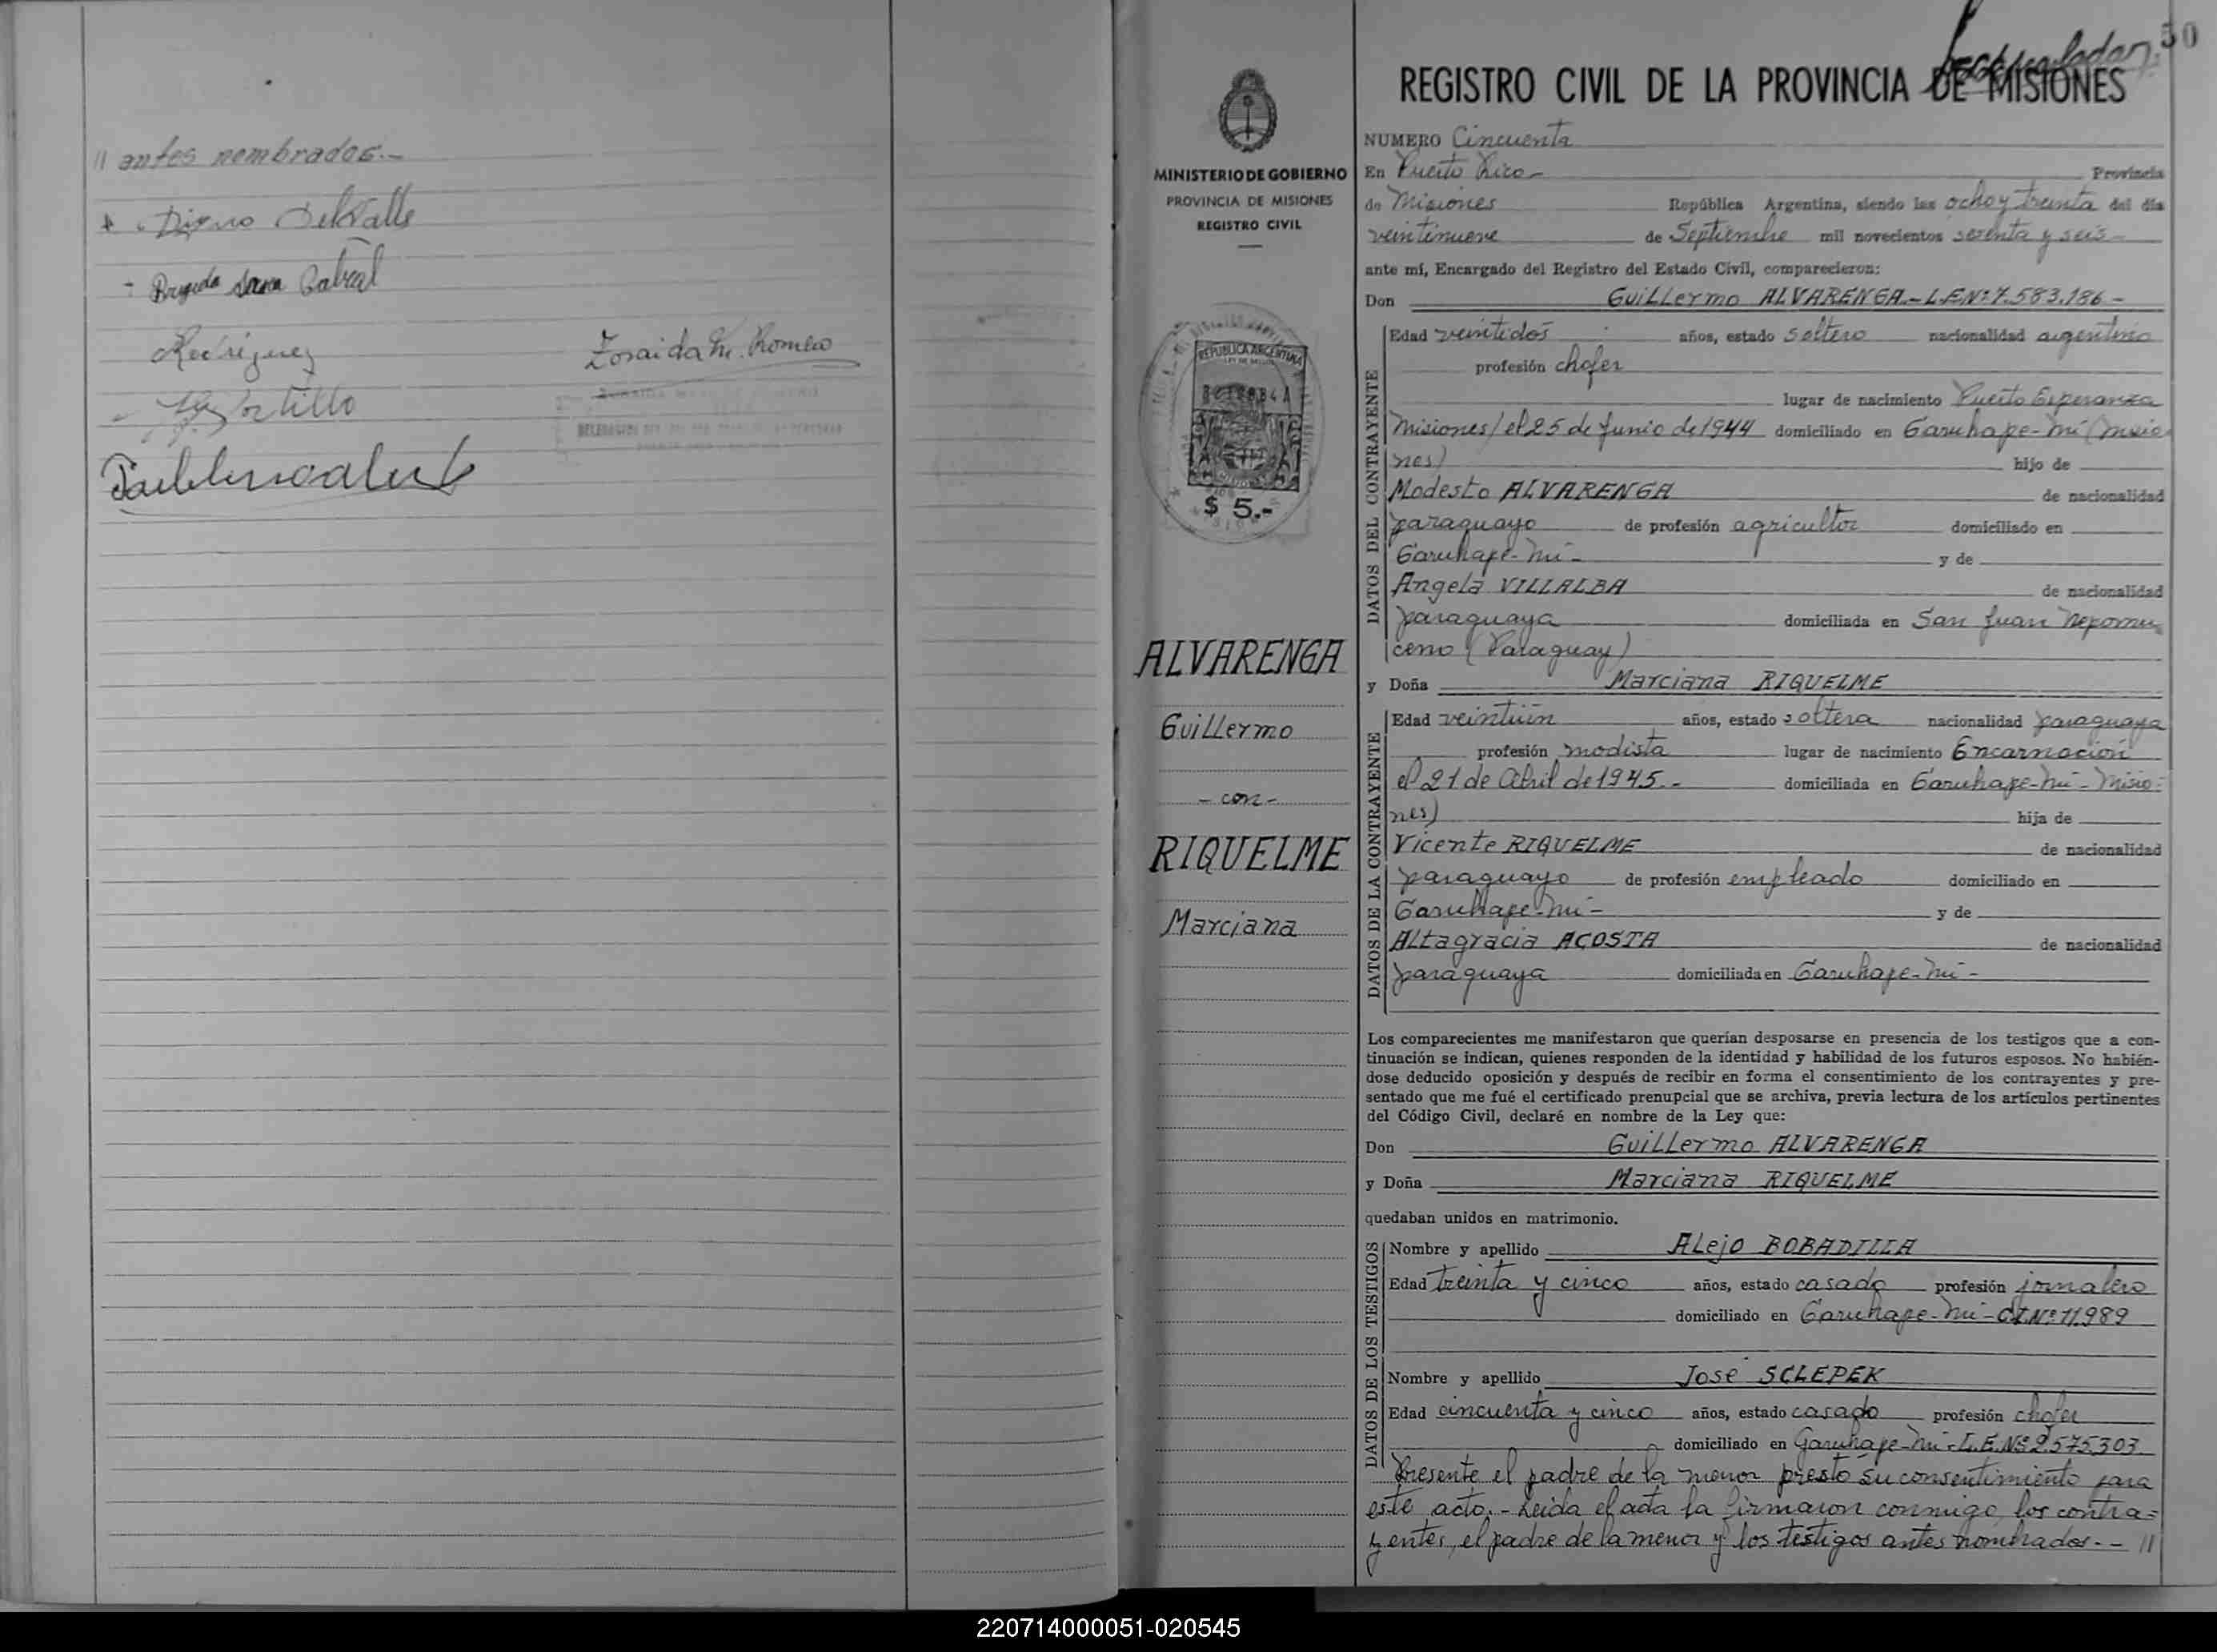 // antes nombrados.-
Digno Delvalle
Brigida Cabral
Rodriguez
Zoraida M. Romeo
Portillo
50
REGISTRO CIVIL DE LA PROVINCIA DE MISIONES
MINISTERIO DE GOBIERNO
PROVINCIA DE MISIONES
REGISTRO CIVIL
REPUBLICA ARGENTINA
$ 5.-
ALVARENGA
Guillermo
- con -
RIQUELME
Marciana
NUMERO Cincuenta
En Puerto Rico - Provincia
de Misiones República Argentina, siendo las ocho y treinta del día
veintinueve de Septiembre mil novecientos sesenta y seis -
ante mí, Encargado del Registro del Estado Civil, comparecieron:
Don Guillermo ALVARENGA.- L.E.Nº 7.583.186 -
DATOS DEL CONTRAYENTE
Edad veintidós años, estado soltero nacionalidad argentino
profesión chofer
lugar de nacimiento Puerto Esperanza
Misiones/ el 25 de Junio de 1944 domiciliado en Garuhape-mí (Misio
nes) hijo de
Modesto ALVARENGA de nacionalidad
paraguayo de profesión agricultor domiciliado en
Garuhape-mí - y de
Angela VILLALBA de nacionalidad
paraguaya domiciliada en San Juan Nepomu
ceno (Paraguay)
y Doña Marciana RIQUELME
DATOS DE LA CONTRAYENTE
Edad veintiún años, estado soltera nacionalidad paraguaya
profesión modista lugar de nacimiento Encarnación
el 21 de Abril de 1945.- domiciliada en Garuhape-mí - Misio-
nes) hija de
Vicente RIQUELME de nacionalidad
paraguayo de profesión empleado domiciliado en
Garuhape-mí - y de
Altagracia ACOSTA de nacionalidad
paraguaya domiciliada en Garuhape-mí -
Los comparecientes me manifestaron que querían desposarse en presencia de los testigos que a con-
tinuación se indican, quienes responden de la identidad y habilidad de los futuros esposos. No habién-
dose deducido oposición y después de recibir en forma el consentimiento de los contrayentes y pre-
sentado que me fué el certificado prenupcial que se archiva, previa lectura de los artículos pertinentes
del Código Civil, declaré en nombre de la Ley que:
Don Guillermo ALVARENGA
y Doña Marciana RIQUELME
quedaban unidos en matrimonio.
DATOS DE LOS TESTIGOS
Nombre y apellido Alejo BOBADILLA
Edad treinta y cinco años, estado casado profesión jornalero
domiciliado en Garuhape-mí - C.I.Nº 11.989
Nombre y apellido José SCLEPEK
Edad cincuenta y cinco años, estado casado profesión chofer
domiciliado en Garuhape-mí - L.E.Nº 2.575.303
Presente el padre de la menor prestó su consentimiento para
este acto.- Leída el acta la firmaron conmigo, los contra=
yentes, el padre de la menor y los testigos antes nombrados.- - //
220714000051-020545